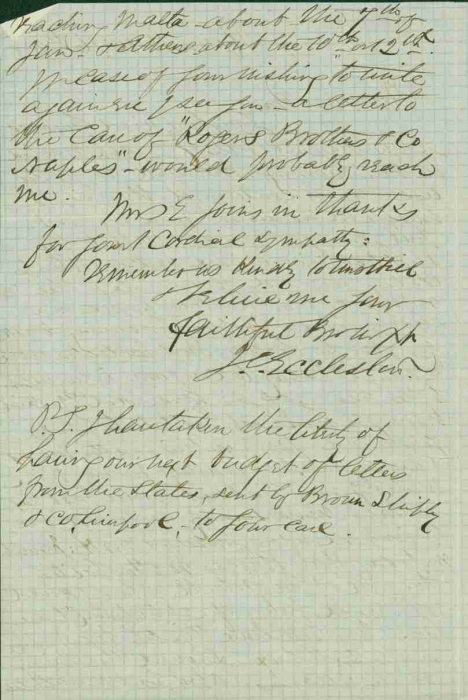 reaching Malta - about the 7th of
Jan - & Athens about the 10th or 12th
In case of your wishing to write
again ere I see you - a letter to
the Care of "Rogers Brothers & Co
Naples" - would probably reach
me.
Mrs E joins in thanks
for your Cordial sympathy:
remember us kindly to
& believe me your
faithful Brother
J. Eccleston.
P.S. I have taken the liberty of
having our next budget of letters
from the States, sent by Brown Shipley
& Co. Liverpool, to your care.